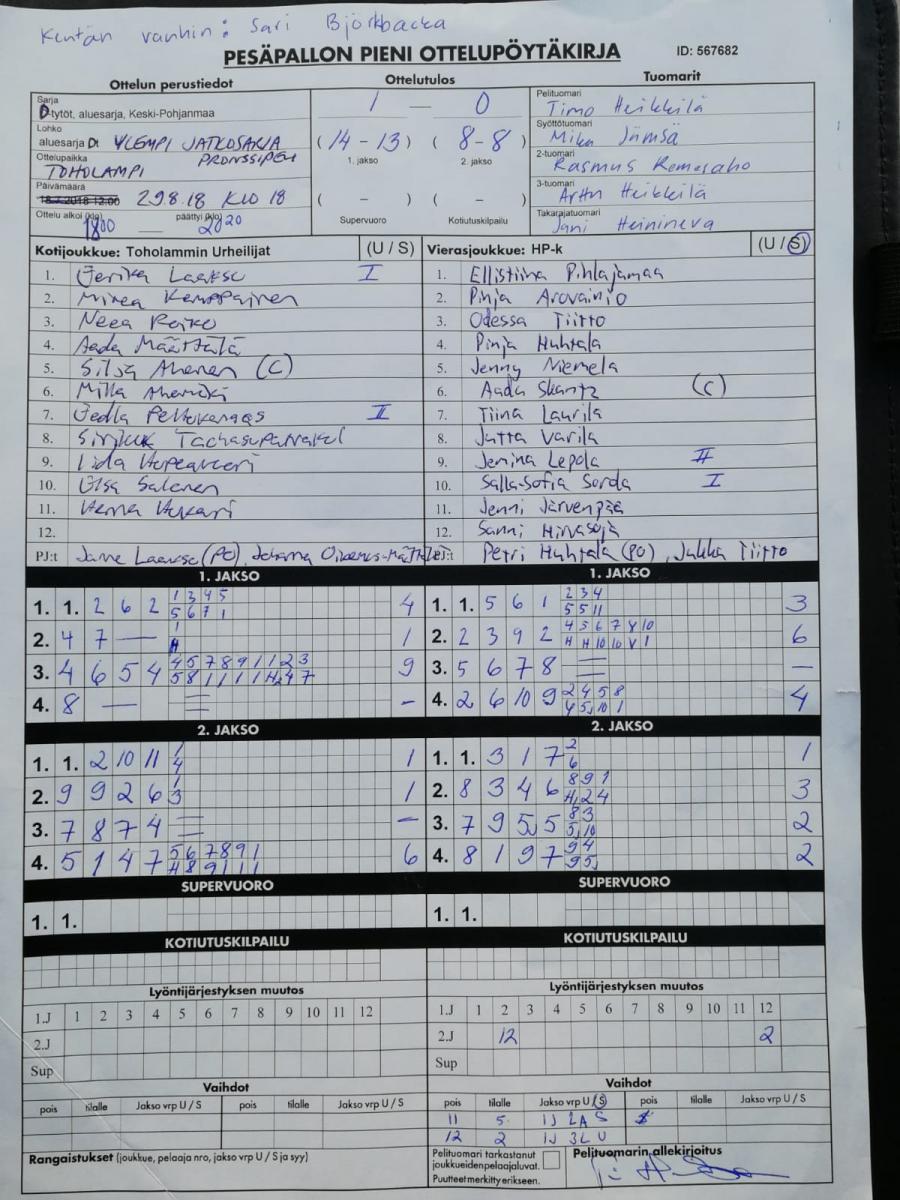 Kentän vanhin: Sari Björkbacka
PESÄPALLON PIENI OTTELUPÖYTÄKIRJA
ID: 567682
Ottelun perustiedot
Ottelutulos
Tuomarit
Sarja
D-tytöt, aluesarja, Keski-Pohjanmaa
1 — 0
Pelituomari
Timo Heikkilä
Lohko
aluesarja Dt YLEMPI JATKOSARJA
PRONSSIPELI
(14 - 13) (8 - 8)
1. jakso 2. jakso
Syöttötuomari
Mika Jämsä
Ottelupaikka
TOHOLAMPI
2-tuomari
Rasmus
Päivämäärä
18.7.2018 12:00 29.8.18 KLO 18
( - ) ( - )
3-tuomari
Arttu Heikkilä
Ottelu alkoi (klo) päättyi (klo)
1800 — 2020
Supervuoro Kotiutuskilpailu
Takarajatuomari
Jani Heinineva
Kotijoukkue: Toholammin Urheilijat (U / S)
Vierasjoukkue: HP-k (U / S)
1. Jerika Laakso I
1. Ellistiina Pihlajamaa
2. Minea Kemppainen
2. Pinja Arovainio
3. Neea
3. Odessa Tiitto
4. Aada Määttälä
4. Pinja Huhtala
5. Silja Ahonen (C)
5. Jenny Niemelä
6. Milla
6. Aada Skantz (C)
7. Jedla Peltokangas II
7. Tiina Laurila
8.
8. Jutta Varila
9. Iida
9. Jemina Lepola II
10. Elsa Salonen
10. Salla-Sofia Sorda I
11.
11. Jenni Järvenpää
12.
12. Sanni Hirvasoja
PJ:t Janne Laakso (PO), Johanna
PJ:t Petri Huhtala (PO), Jukka Tiitto
1. JAKSO
1. JAKSO
1. 1. 2 6 2 1 3 4 5 4
5 6 7 1
1. 1. 5 6 1 2 3 4 3
5 5 11
2. 4 7 — 1 1
H
2. 2 3 9 2 4 5 6 7 8 10 6
H H 10 10 V 1
3. 4 6 5 4 4 5 7 8 9 1 1 2 3 9
5 8 1 1 1 1 H 4 7
3. 5 6 7 8 = —
4. 8 — = —
4. 2 6 10 9 2 4 5 8 4
4 5 10 1
2. JAKSO
2. JAKSO
1. 1. 2 10 11 1 1
4
1. 1. 3 1 7 2 1
6
2. 9 9 2 6 1 1
3
2. 8 3 4 6 8 9 1 3
H 2 4
3. 7 8 7 4 = —
3. 7 9 5 5 8 3 2
5 10
4. 5 1 4 7 5 6 7 8 9 1 6
H 8 9 1 1 1
4. 8 1 9 7 9 4 2
9 5
SUPERVUORO
SUPERVUORO
1. 1.
1. 1.
KOTIUTUSKILPAILU
KOTIUTUSKILPAILU
Lyöntijärjestyksen muutos
Lyöntijärjestyksen muutos
1.J 1 2 3 4 5 6 7 8 9 10 11 12
1.J 1 2 3 4 5 6 7 8 9 10 11 12
2.J
2.J 12 2
Sup
Sup
Vaihdot
Vaihdot
pois tilalle Jakso vrp U / S pois tilalle Jakso vrp U / S
pois tilalle Jakso vrp U / S pois tilalle Jakso vrp U / S
11 5 1J 2A S
12 2 1J 3L U
Rangaistukset (joukkue, pelaaja nro, jakso vrp U / S ja syy)
Pelituomari tarkastanut
joukkueiden pelaajaluvat.
Puutteet merkitty erikseen.
Pelituomarin allekirjoitus